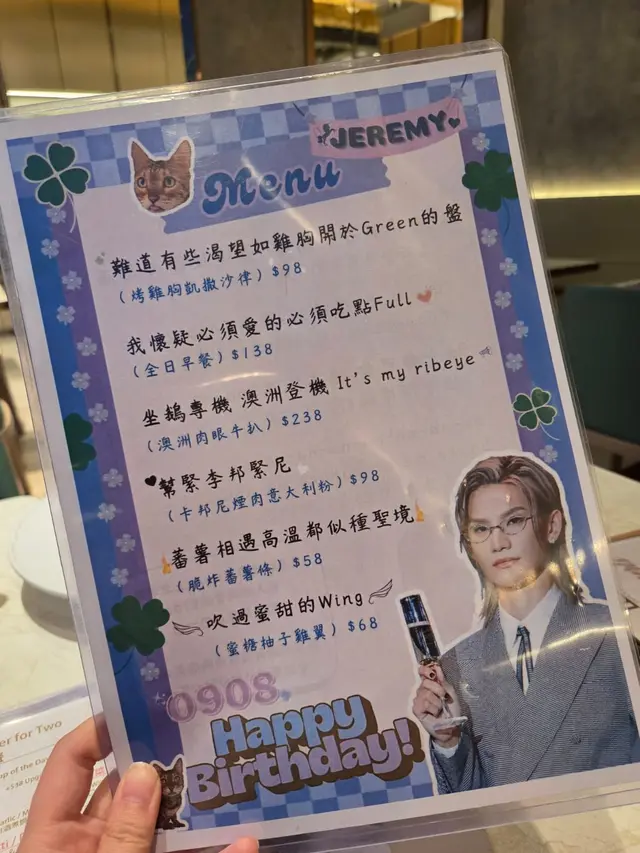 JEREMY
Menu
難道有些渴望如雞胸開於Green的盤
(烤雞胸凱撒沙律) $98
我懷疑必須愛的必須吃點Full
(全日早餐) $138
坐鎢專機 澳洲登機 It's my ribeye
(澳洲肉眼牛扒) $238
幫緊李邦緊尼
(卡邦尼煙肉意大利粉) $98
蕃薯相遇高溫都似種聖境
(脆炸蕃薯條) $58
吹過蜜甜的Wing
(蜜糖柚子雞翼) $68
0908
Happy
Birthday!
er for Two
op of the Da